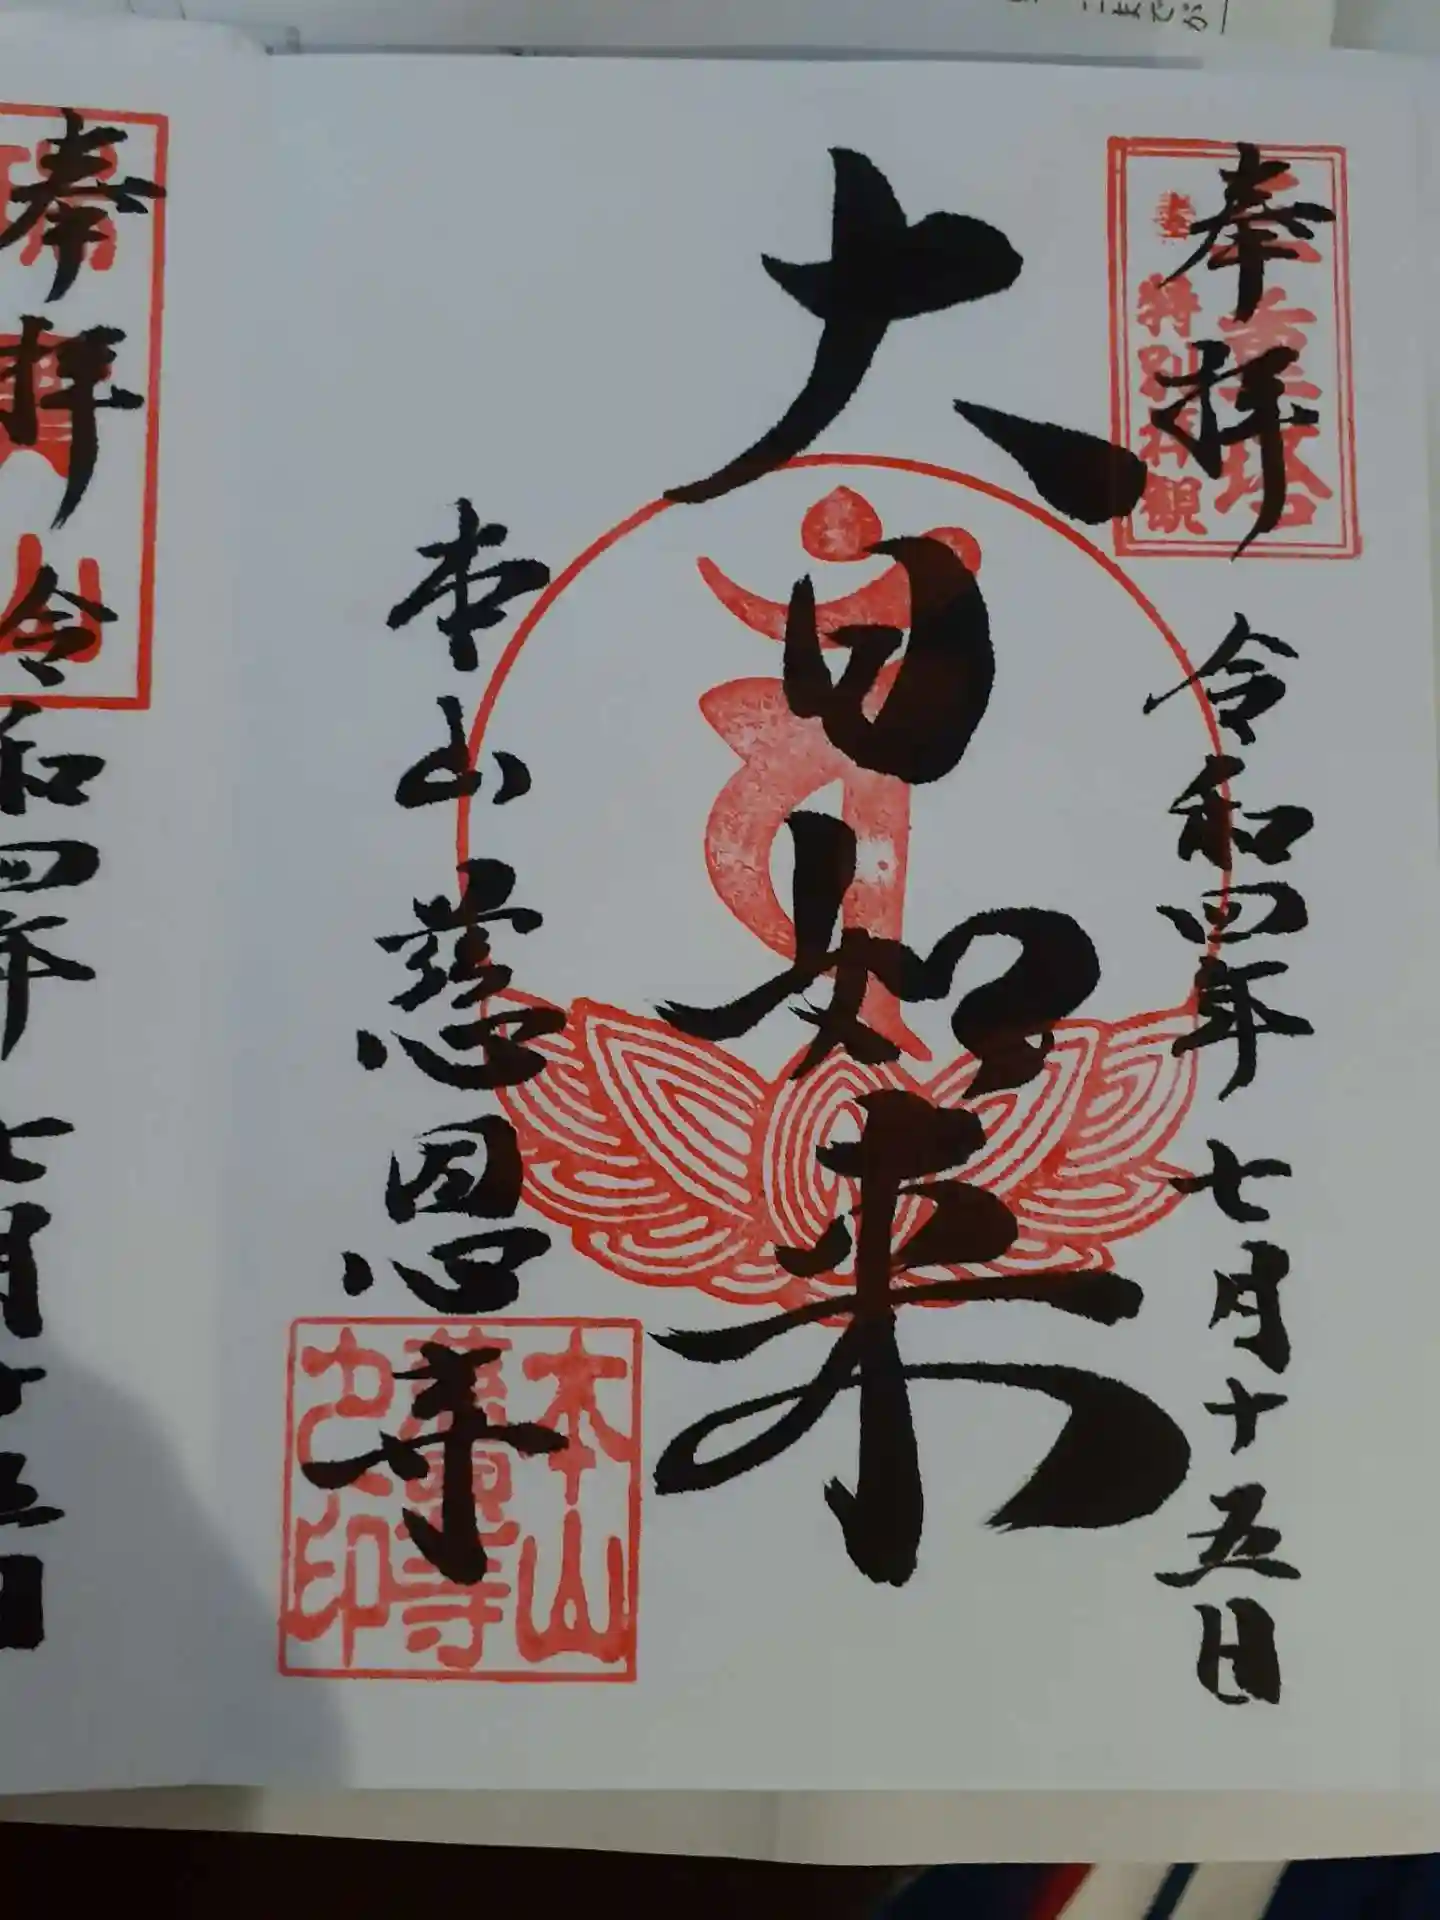 奉拝
令和四年 七月十五日
三重塔
特別拝観
大日如来
本山慈恩寺
本山
慈恩寺
之印
奉拝 令和四年 七月十五日